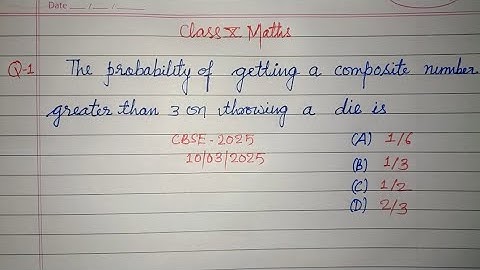 Date / /
Class X Maths
Q-1 The probability of getting a composite number
greater than 3 on throwing a die is
CBSE-2025 (A) 1/6
10/03/2025 (B) 1/3
(C) 1/2
(D) 2/3